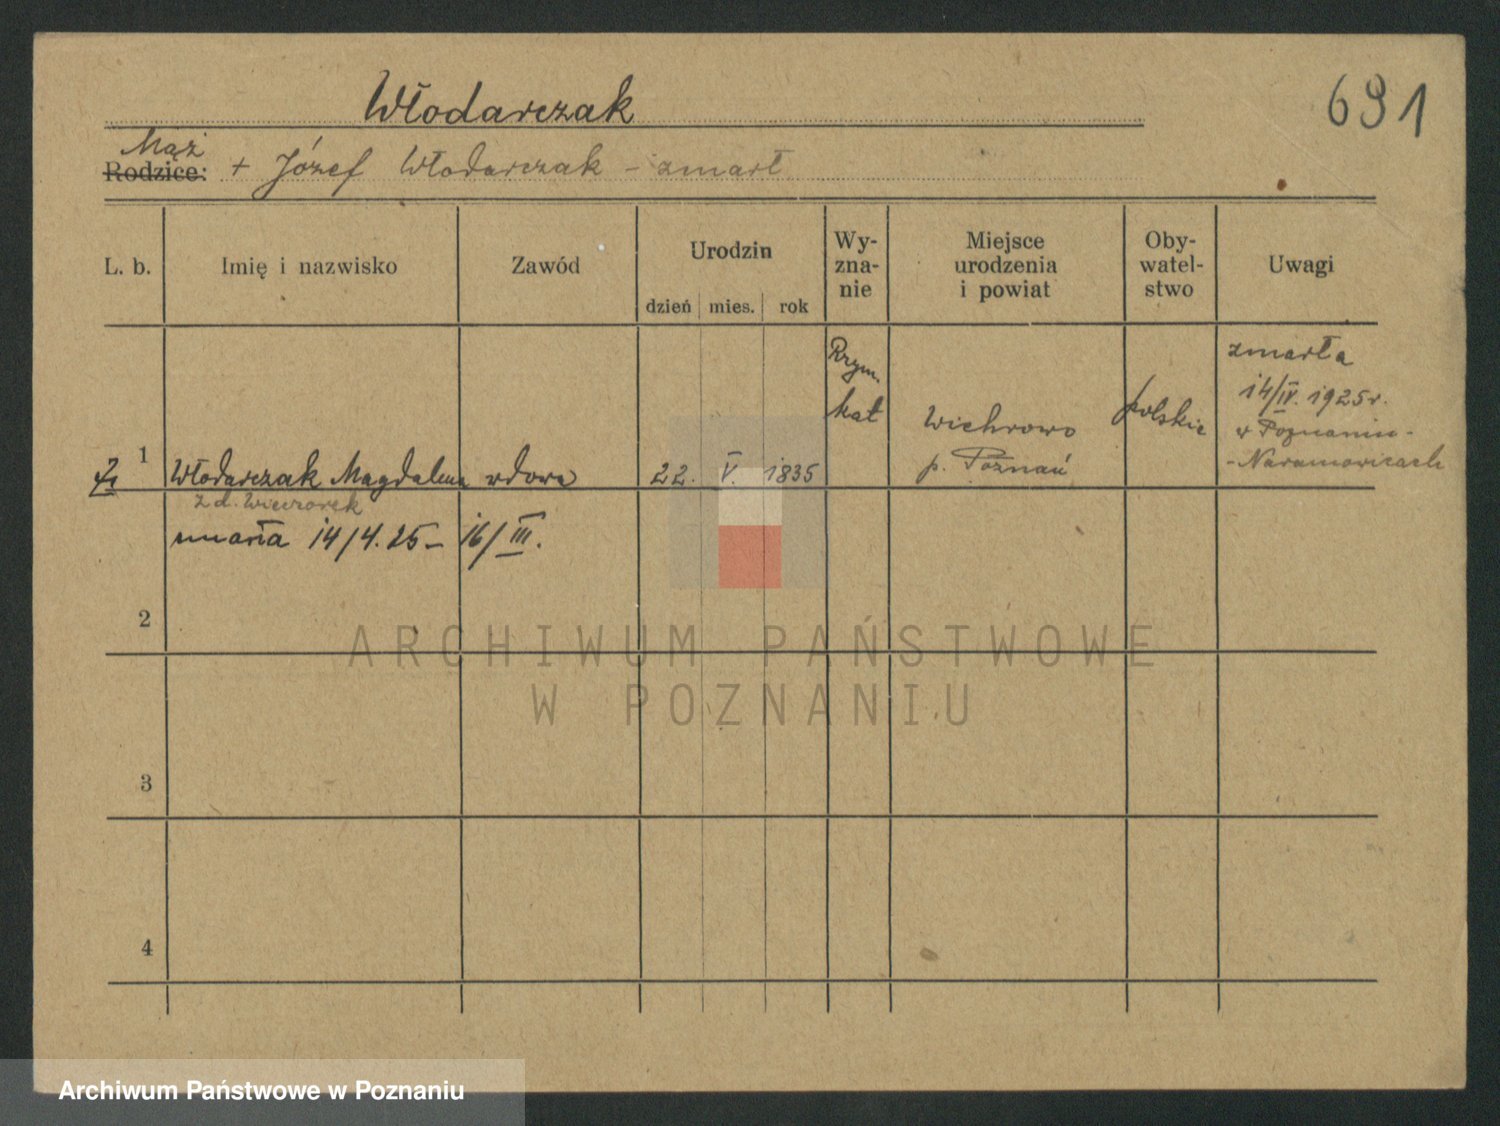 Włodarczak
691
Mąż
Rodzice: + Józef Włodarczak – zmarł
L. b.
Imię i nazwisko
Zawód
Urodzin
dzień mies. rok
Wy-
zna-
nie
Miejsce
urodzenia
i powiat
Oby-
watel-
stwo
Uwagi
1
Włodarczak Magdalena
z d. Wieczorek
wdowa
22. V. 1835
Rzym.
kat
Wichrowo
p. Poznań
polskie
zmarła
14/IV. 1925 r.
w Poznaniu-
-Naramowicach
zmarła 14/4. 25 – 16/III.
2
3
4
ARCHIWUM PAŃSTWOWE
W POZNANIU
Archiwum Państwowe w Poznaniu